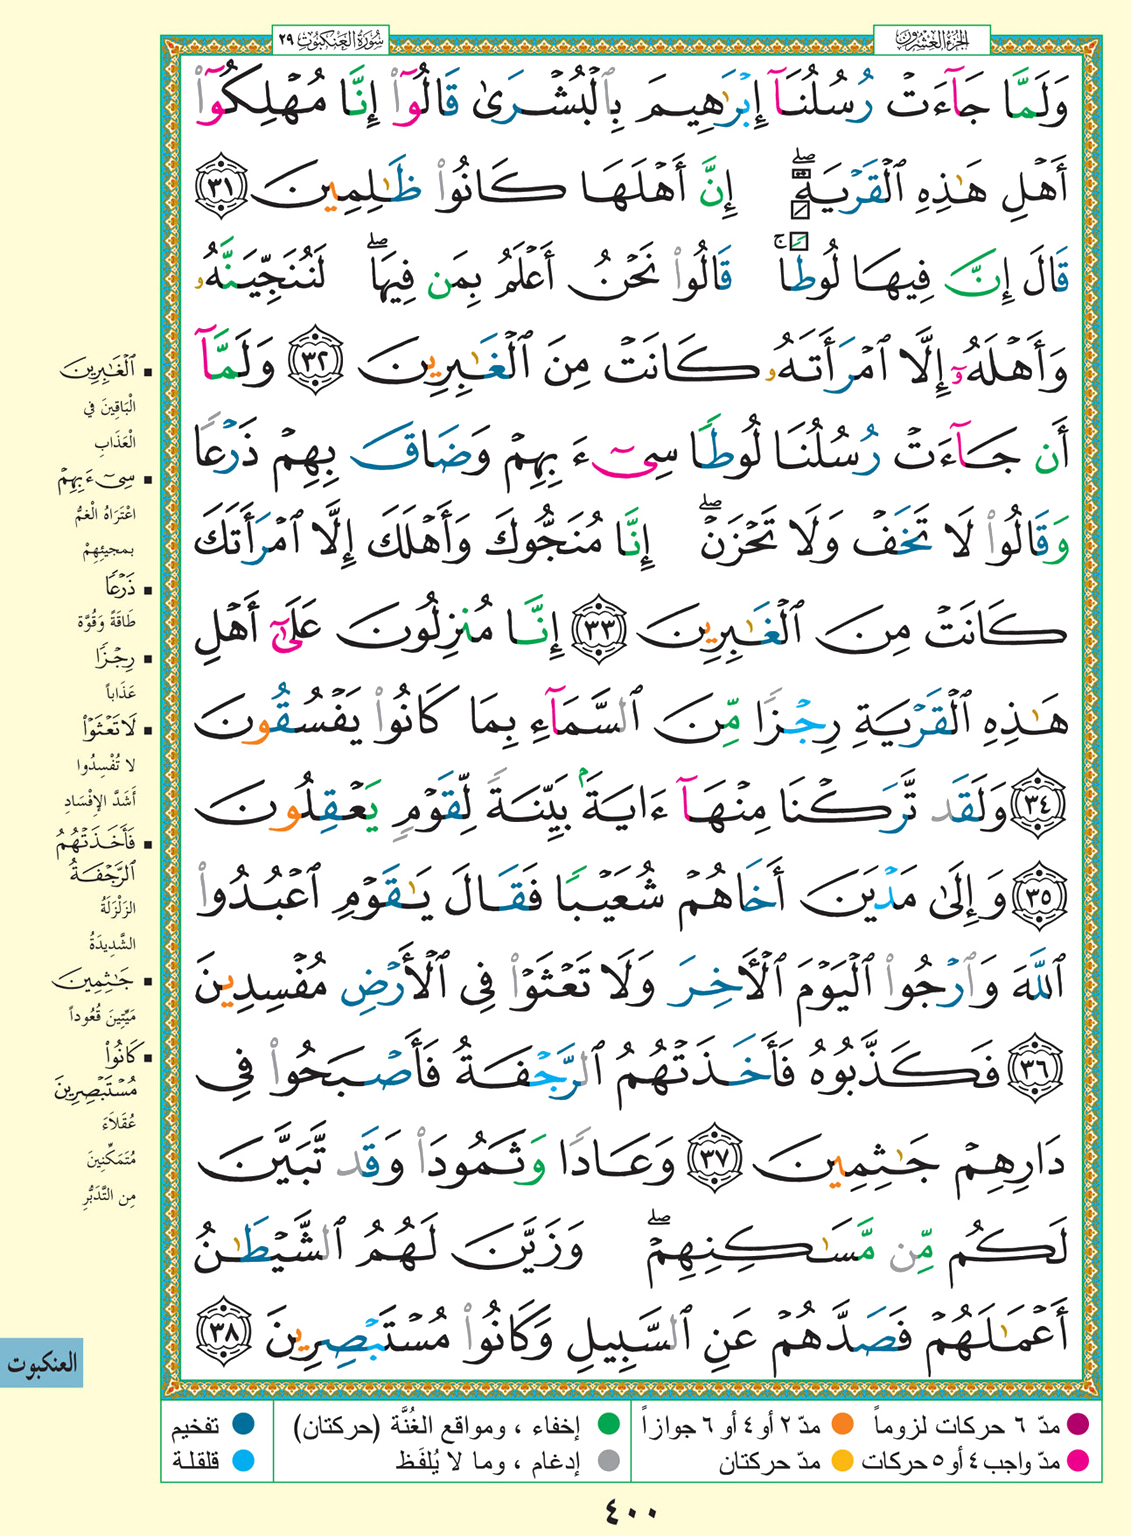 الجزء العشرون
سورة العنكبوت ٢٩
وَلَمَّا جَآءَتْ رُسُلُنَآ إِبْرَٰهِيمَ بِٱلْبُشْرَىٰ قَالُوٓا۟ إِنَّا مُهْلِكُوٓا۟
أَهْلِ هَٰذِهِ ٱلْقَرْيَةِ ۖ إِنَّ أَهْلَهَا كَانُوا۟ ظَٰلِمِينَ ٣١
قَالَ إِنَّ فِيهَا لُوطًا ۚ قَالُوا۟ نَحْنُ أَعْلَمُ بِمَن فِيهَا ۖ لَنُنَجِّيَنَّهُۥ
وَأَهْلَهُۥٓ إِلَّا ٱمْرَأَتَهُۥ كَانَتْ مِنَ ٱلْغَٰبِرِينَ ٣٢ وَلَمَّآ
أَن جَآءَتْ رُسُلُنَا لُوطًا سِىٓءَ بِهِمْ وَضَاقَ بِهِمْ ذَرْعًا
وَقَالُوا۟ لَا تَخَفْ وَلَا تَحْزَنْ ۖ إِنَّا مُنَجُّوكَ وَأَهْلَكَ إِلَّا ٱمْرَأَتَكَ
كَانَتْ مِنَ ٱلْغَٰبِرِينَ ٣٣ إِنَّا مُنزِلُونَ عَلَىٰٓ أَهْلِ
هَٰذِهِ ٱلْقَرْيَةِ رِجْزًا مِّنَ ٱلسَّمَآءِ بِمَا كَانُوا۟ يَفْسُقُونَ
٣٤ وَلَقَد تَّرَكْنَا مِنْهَآ ءَايَةًۢ بَيِّنَةً لِّقَوْمٍ يَعْقِلُونَ
٣٥ وَإِلَىٰ مَدْيَنَ أَخَاهُمْ شُعَيْبًا فَقَالَ يَٰقَوْمِ ٱعْبُدُوا۟
ٱللَّهَ وَٱرْجُوا۟ ٱلْيَوْمَ ٱلْأَخِرَ وَلَا تَعْثَوْا۟ فِى ٱلْأَرْضِ مُفْسِدِينَ
٣٦ فَكَذَّبُوهُ فَأَخَذَتْهُمُ ٱلرَّجْفَةُ فَأَصْبَحُوا۟ فِى
دَارِهِمْ جَٰثِمِينَ ٣٧ وَعَادًا وَثَمُودَا۟ وَقَد تَّبَيَّنَ
لَكُم مِّن مَّسَٰكِنِهِمْ ۖ وَزَيَّنَ لَهُمُ ٱلشَّيْطَٰنُ
أَعْمَٰلَهُمْ فَصَدَّهُمْ عَنِ ٱلسَّبِيلِ وَكَانُوا۟ مُسْتَبْصِرِينَ ٣٨
ٱلْغَٰبِرِينَ
الْبَاقِينَ فِي
الْعَذَابِ
سِىٓءَ بِهِمْ
اعْتَرَاهُ الْغَمُّ
بمجيئِهِمْ
ذَرْعًا
طَاقَةً وَقُوَّة
رِجْزًا
عَذَاباً
لَا تَعْثَوْا۟
لا تُفْسِدُوا
أَشَدَّ الإِفْسَادِ
فَأَخَذَتْهُمُ
ٱلرَّجْفَةُ
الزَلْزَلَةُ
الشَّدِيدَةُ
جَٰثِمِينَ
مَيِّتِينَ قُعُوداً
كَانُوا۟
مُسْتَبْصِرِينَ
عُقَلَاءَ
مُتَمَكِّنِينَ
مِن التَّدَبُّرِ
العنكبوت
مدّ ٦ حركات لزوماً
مدّ ٢ أو ٤ أو ٦ جوازاً
إخفاء ، ومواقع الغُنَّة (حركتان)
تفخيم
مدّ واجب ٤ أو ٥ حركات
مدّ حركتان
إدغام ، وما لا يُلفَظ
قلقلة
٤٠٠